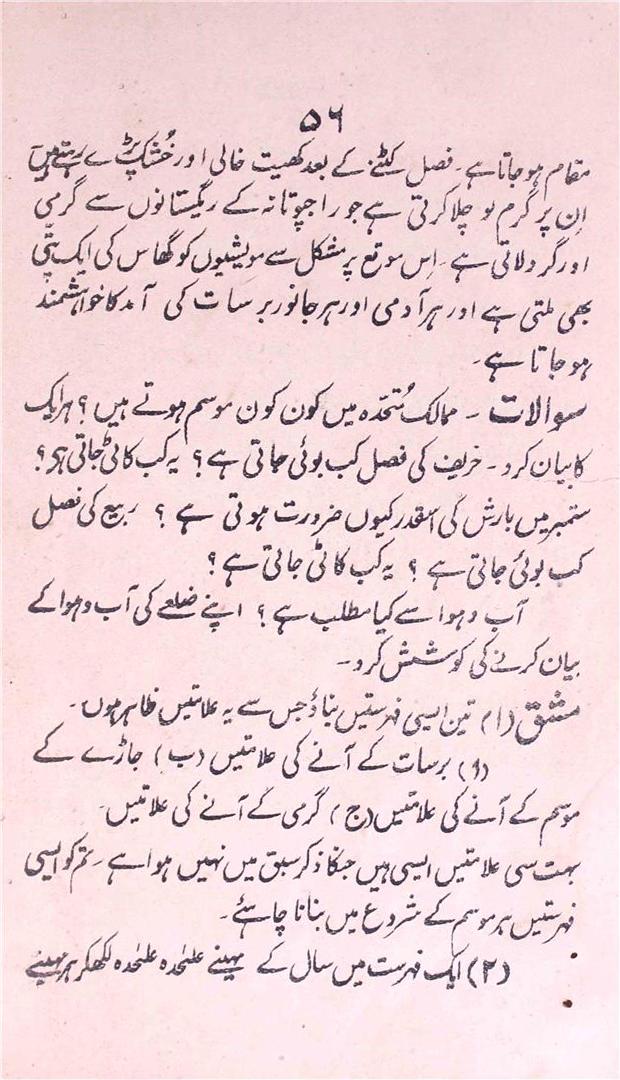 ۵۶
مقام ہو جاتا ہے۔ فصل کٹنے کے بعد کھیت خالی اور خُشک پڑے رہتے ہیں
اِن پر گرم لو چلا کرتی ہے جو راجپوتانہ کے ریگستانوں سے گرمی
اور گرد لاتی ہے۔ اِس موقع پر مشکل سے مویشیوں کو گھاس کی ایک پتّی
بھی ملتی ہے اور ہر آدمی اور ہر جانور برسات کی آمد کا خواہشمند
ہو جاتا ہے۔
سوالات ۔ ممالک مُتحّدہ میں کون کون موسم ہوتے ہیں؟ ہر ایک
کا بیان کرو۔ خریف کی فصل کب بوئی جاتی ہے؟ یہ کب کاٹی جاتی ہی؟
ستمبر میں بارش کی اسقدر کیوں ضرورت ہوتی ہے؟ ربیع کی فصل
کب بوئی جاتی ہے؟ یہ کب کاٹی جاتی ہے؟
آب و ہوا سے کیا مطلب ہے؟ اپنے ضلعے کی آب و ہوا کے
بیان کرنے کی کوشش کرو۔
مشق (۱) تین ایسی فہرستیں بناؤ جس سے یہ علامتیں ظاہر ہوں۔
(۱) برسات کے آنے کی علامتیں (ب) جاڑے کے
موسم کے آنے کی علامتیں (ج) گرمی کے آنے کی علامتیں۔
بہت سی علامتیں ایسی ہیں جنکا ذکر سبق میں نہیں ہوا ہے۔ تم کو ایسی
فہرستیں ہر موسم کے شروع میں بنانا چاہئے۔
(۲) ایک فہرست میں سال کے مہینے علیٰحدہ علیٰحدہ لکھکر ہر مہینے